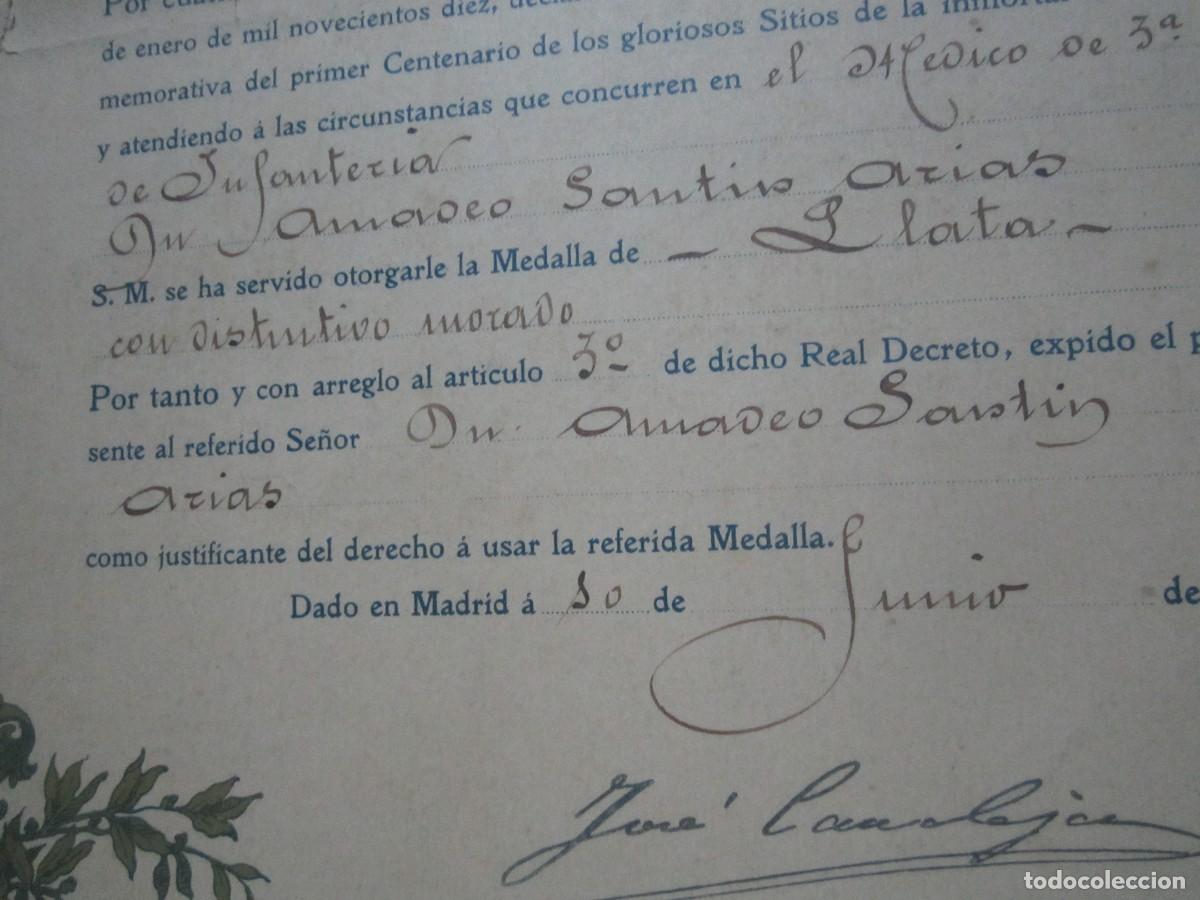 Por
de enero de mil novecientos diez,
memorativa del primer Centenario de los gloriosos Sitios de la
y atendiendo á las circunstancias que concurren en el Medico de 3ª
de Infanteria
Dn Amadeo Santin Arias
S. M. se ha servido otorgarle la Medalla de — Plata —
con distintivo morado
Por tanto y con arreglo al artículo 3º de dicho Real Decreto, expido el p
sente al referido Señor Dn. Amadeo Santin
Arias
como justificante del derecho á usar la referida Medalla.
Dado en Madrid á 10 de Junio de
José Canalejas
todocoleccion